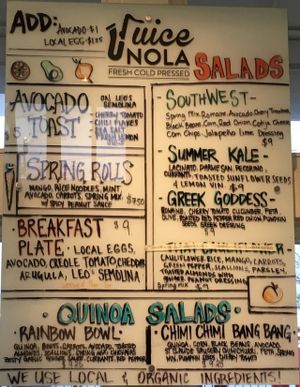 ADD: AVOCADO - $1
LOCAL EGG - $1.05
Juice
NOLA
FRESH COLD PRESSED
SALADS
AVOCADO
TOAST
ON LEO'S
SEMOLINA
CHERRY TOMATO
CHILI FLAKES
SEA SALT
SPRING ROLLS
MANGO, RICE NOODLES, MINT,
AVOCADO, CARROTS, SPRING MIX,
W/ SPICY PEANUT SAUCE $7.50
BREAKFAST $9
PLATE • LOCAL EGGS,
AVOCADO, CREOLE TOMATO, CHEDDAR
ARUGULA, LEO'S SEMOLINA
SOUTHWEST -
Spring Mix, Romaine, Avocado, Cherry Tomatoes,
Black Beans, Corn, Red Onion, Cotija Cheese,
Corn Chips, Jalapeño Lime Dressing
$9
SUMMER KALE -
LACINATO, PARMESAN, PECORINO
TOASTED SUNFLOWER SEEDS
LEMON VIN $9
GREEK GODDESS -
ROMAINE, CHERRY TOMATO, CUCUMBER, FETA
OLIVE, ROASTED RED PEPPER, RED ONION, PUMPKIN
SEEDS, GREEK DRESSING
$9
CAULIFLOWER RICE, MANGO, CARROTS,
GREEN PEPPER, SCALLIONS, PARSLEY,
TOASTED ALMONDS, WITH
PEANUT DRESSING
Spring Mix $9
QUINOA SALADS
• RAINBOW BOWL •
QUINOA, BEETS, CARROTS, AVOCADO, TOASTED
ALMONDS, SCALLIONS,
• CHIMI CHIMI BANG BANG •
QUINOA, CORN, BLACK BEANS, AVOCADO,
PUMPKIN SEEDS,
WE USE LOCAL & ORGANIC INGREDIENTS!